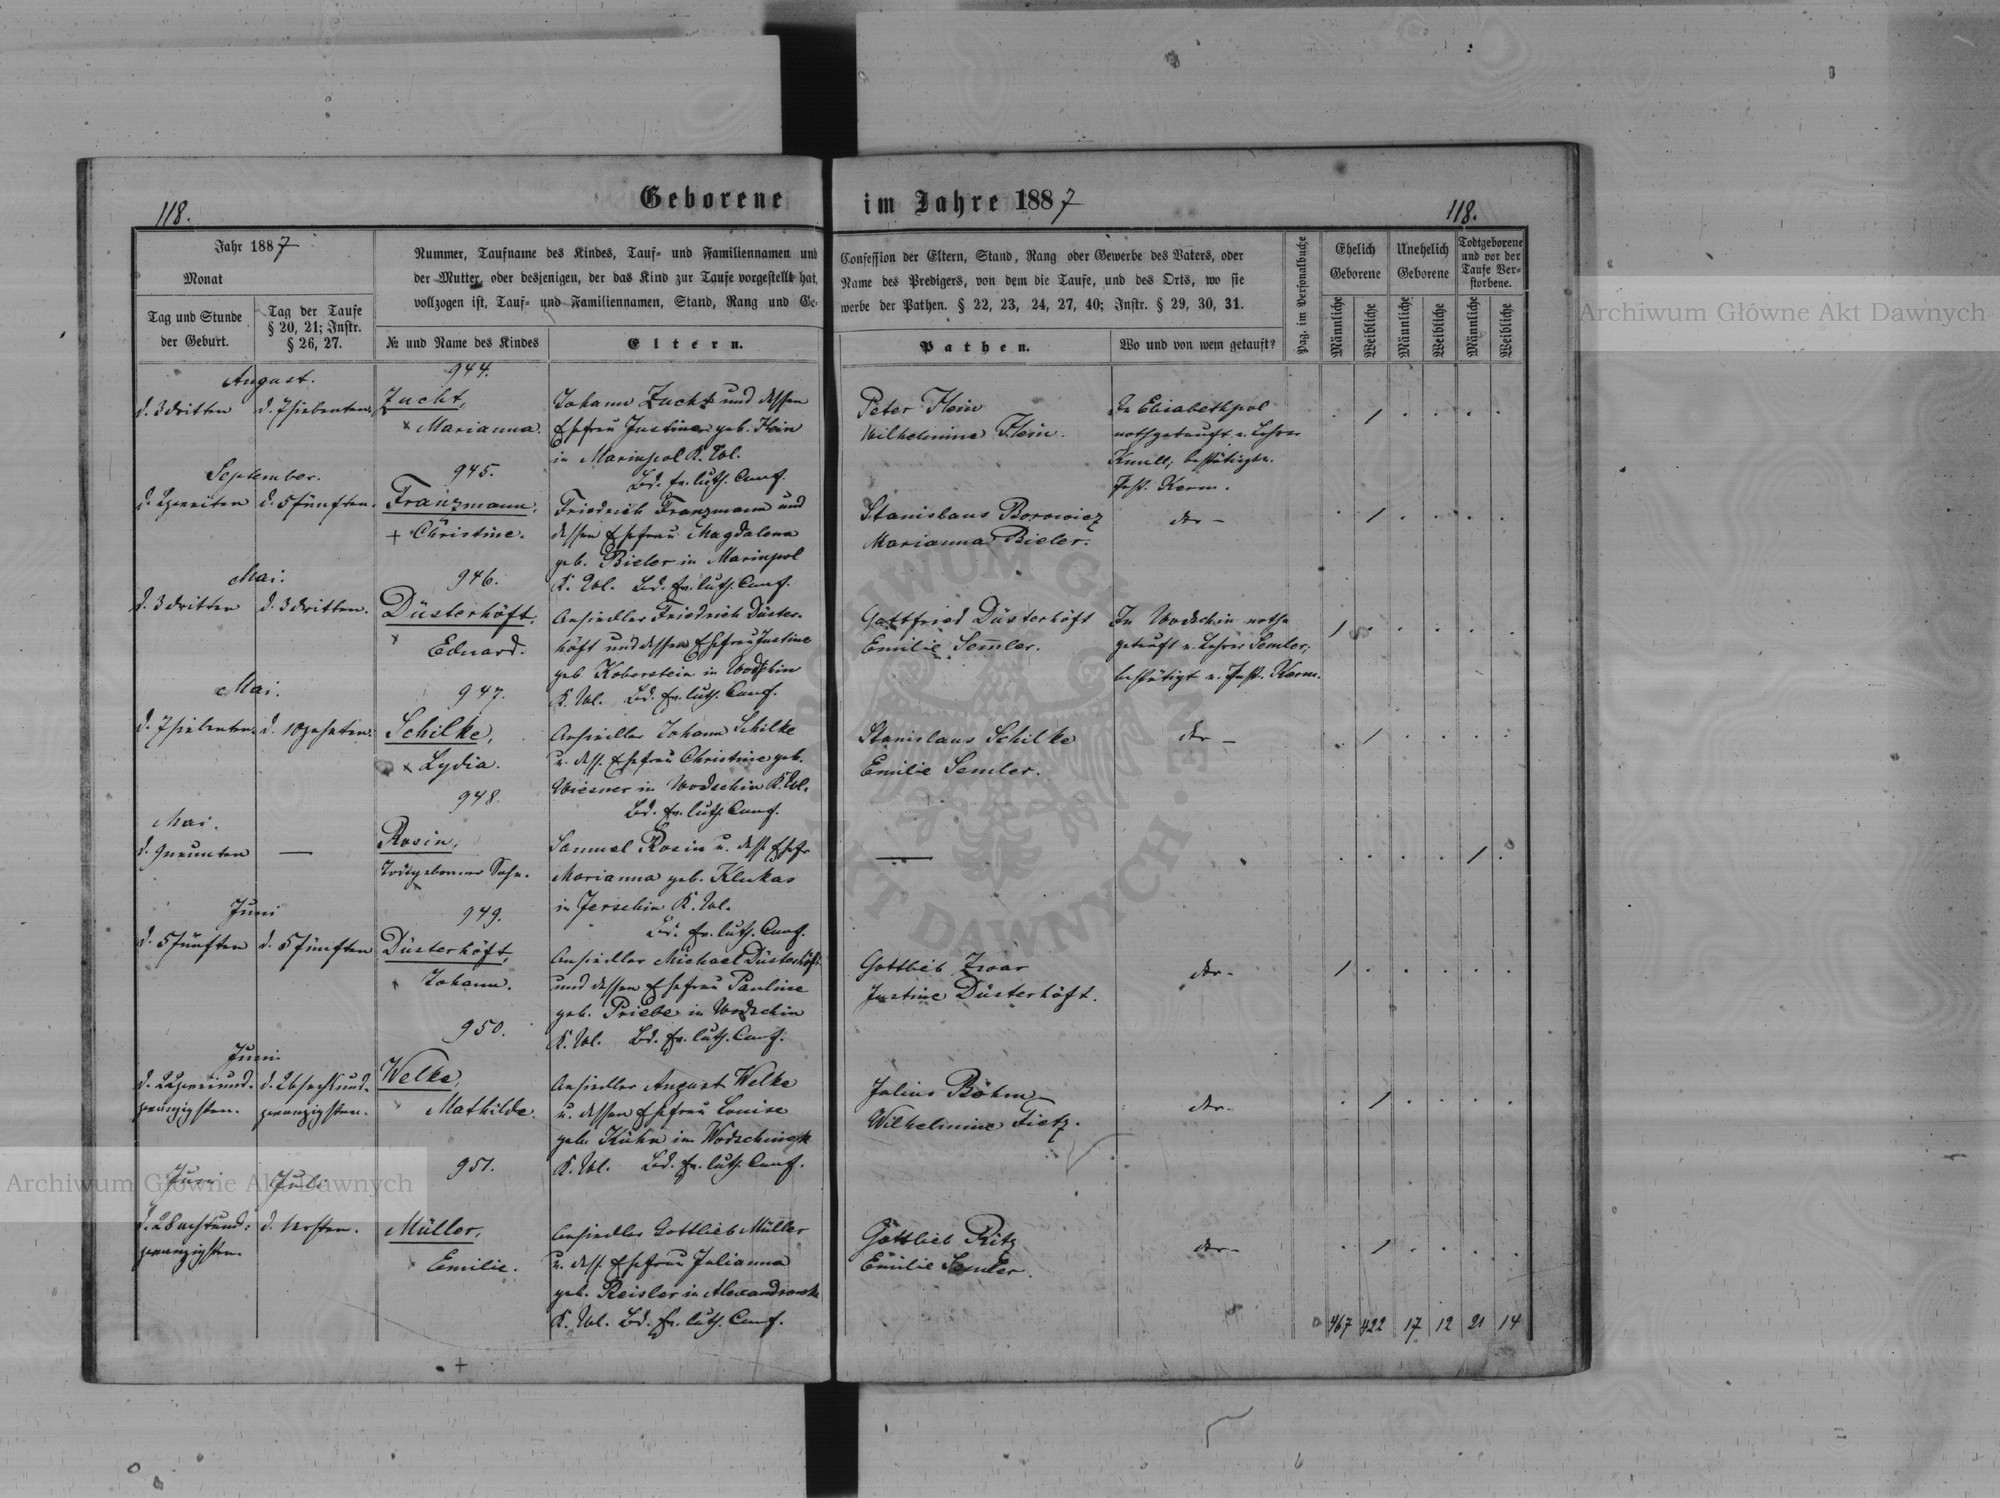 Geborene im Jahre 1887
118.
118.
Jahr 1887
Monat
Tag und Stunde
der Geburt.
Tag der Taufe
§ 20, 21; Instr.
§ 26, 27.
Nummer, Taufname des Kindes, Tauf- und Familiennamen und
der Mutter, oder desjenigen, der das Kind zur Taufe vorgestellt hat,
vollzogen ist, Tauf- und Familiennamen, Stand, Rang und Ge-
№ und Name des Kindes
Eltern.
Confession der Eltern, Stand, Rang oder Gewerbe des Vaters, oder
Name des Predigers, von dem die Taufe, und des Orts, wo sie
werbe der Pathen. § 22, 23, 24, 27, 40; Instr. § 29, 30, 31.
Pathen.
Wo und von wem getauft?
Pag. im Personalbuche
Ehelich
Geborene
Unehelich
Geborene
Todtgeborene
und vor der
Taufe Ver-
storbene.
Männliche
Weibliche
Männliche
Weibliche
Männliche
Weibliche
August.
d. 3 dritten
d. 7 siebenten
944.
Zucht,
Marianna.
Johann Zucht und dessen
Ehefrau Justine geb. Hein
in Marinpol K. Wol.
Bd. ev. luth. Conf.
Peter Hein
Wilhelmine Hein.
In Elisabethpol
nothgetauft v. Lehrer
Knull, bestätigt v.
Past. Kerm.
September.
d. 2 zweiten
d. 5 fünften.
945.
Franzmann,
+ Christine.
Friedrich Franzmann und
dessen Ehefrau Magdalena
geb. Bieler in Marinpol
K. Wol. Bd. ev. luth. Conf.
Stanislaus Borowicz
Marianna Bieler.
der –
Mai.
d. 3 dritten
d. 3 dritten.
946.
Düsterhöft,
Eduard.
Ansiedler Friedrich Düster-
höft und dessen Ehefrau Justine
geb Koberstein in Wodschin
K. Wol. Bd. ev. luth. Conf.
Gottfried Düsterhöft
Emilie Semler.
In Wodschin noth-
getauft v. Lehrer Semler,
bestätigt v. Past. Kerm.
Mai.
d. 7 siebenten
d. 10 zehnten.
947.
Schilke,
Lydia.
Ansiedler Johann Schilke
u. dess. Ehefrau Christine geb.
Wiesner in Wodschin K. Wol.
Bd. ev. luth. Conf.
Stanislaus Schilke
Emilie Semler.
der –
Mai.
d. 9 neunten
—
948.
Rosin,
Todtgeborner Sohn.
Samuel Rosin u. dess. Ehefr
Marianna geb. Klukas
in Jerschin K. Wol.
Bd. ev. luth. Conf.
—
Juni
d. 5 fünften
d. 5 fünften
949.
Düsterhöft,
Johann.
Ansiedler Michael Düsterhöft
und dessen Ehefrau Pauline
geb. Priebe in Wodschin
K. Wol. Bd. ev. luth. Conf.
Gottlieb Zwar
Justine Düsterhöft.
der –
Juni
d. 22 zweiund-
zwanzigsten.
d. 26 sechsund-
zwanzigsten.
950.
Welke,
Mathilde.
Ansiedler August Welke
u. dessen Ehefrau Louise
geb. Kühn in Wodschinek
K. Wol. Bd. ev. luth. Conf.
Julius Böhm
Wilhelmine Tietz.
der –
Juni
Juli
d. 28 achtund-
zwanzigsten.
d. 1 ersten.
951.
Müller,
Emilie.
Ansiedler Gottlieb Müller
u. dess. Ehefrau Julianna
geb. Reisler in Alexandrowk
K. Wol. Bd. ev. luth. Conf.
Gottlieb Ritz
Emilie Semler.
der –
467 422 17 12 21 14
Archiwum Główne Akt Dawnych
Archiwum Główne Akt Dawnych